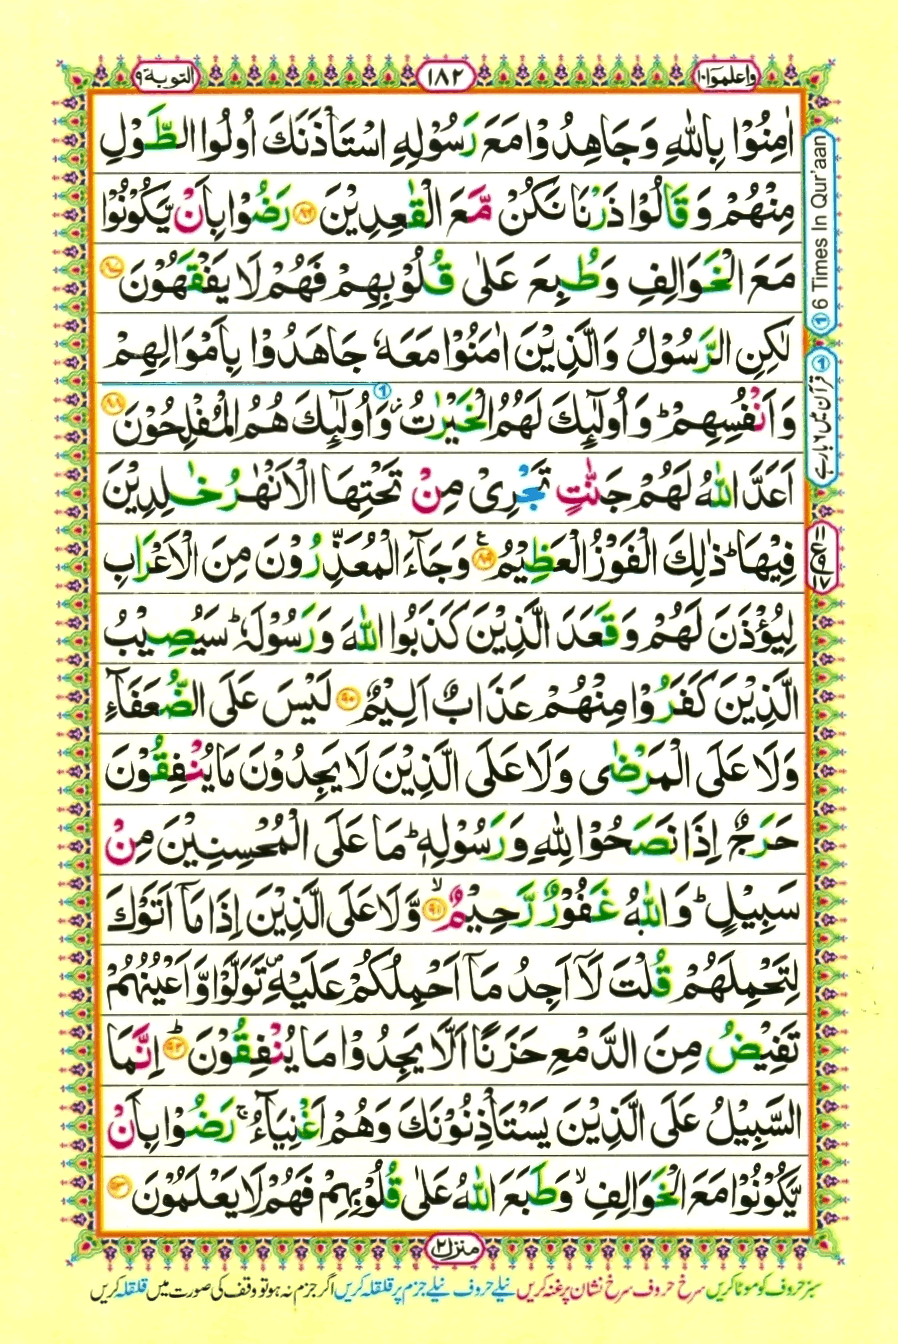 واعلموا١٠ ١٨٢ التوبة٩
اٰمِنُوْا بِاللّٰهِ وَجَاهِدُوْا مَعَ رَسُوْلِهِ اسْتَاْذَنَكَ اُولُوا الطَّوْلِ
مِنْهُمْ وَقَالُوْا ذَرْنَا نَكُنْ مَّعَ الْقٰعِدِيْنَ ﴿٨٦﴾ رَضُوْا بِاَنْ يَّكُوْنُوْا
مَعَ الْخَوَالِفِ وَطُبِعَ عَلٰى قُلُوْبِهِمْ فَهُمْ لَا يَفْقَهُوْنَ ﴿٨٧﴾
لٰكِنِ الرَّسُوْلُ وَالَّذِيْنَ اٰمَنُوْا مَعَهٗ جَاهَدُوْا بِاَمْوَالِهِمْ
وَاَنْفُسِهِمْ ؕ وَاُولٰٓئِكَ لَهُمُ الْخَيْرٰتُ ؗ وَاُولٰٓئِكَ هُمُ الْمُفْلِحُوْنَ ﴿٨٨﴾
اَعَدَّ اللّٰهُ لَهُمْ جَنّٰتٍ تَجْرِىْ مِنْ تَحْتِهَا الْاَنْهٰرُ خٰلِدِيْنَ
فِيْهَا ؕ ذٰلِكَ الْفَوْزُ الْعَظِيْمُ ﴿٨٩﴾ وَجَآءَ الْمُعَذِّرُوْنَ مِنَ الْاَعْرَابِ
لِيُؤْذَنَ لَهُمْ وَقَعَدَ الَّذِيْنَ كَذَبُوا اللّٰهَ وَرَسُوْلَهٗ ؕ سَيُصِيْبُ
الَّذِيْنَ كَفَرُوْا مِنْهُمْ عَذَابٌ اَلِيْمٌ ﴿٩٠﴾ لَيْسَ عَلَى الضُّعَفَآءِ
وَلَا عَلَى الْمَرْضٰى وَلَا عَلَى الَّذِيْنَ لَا يَجِدُوْنَ مَا يُنْفِقُوْنَ
حَرَجٌ اِذَا نَصَحُوْا لِلّٰهِ وَرَسُوْلِهٖ ؕ مَا عَلَى الْمُحْسِنِيْنَ مِنْ
سَبِيْلٍ ؕ وَاللّٰهُ غَفُوْرٌ رَّحِيْمٌ ۙ﴿٩١﴾ وَّلَا عَلَى الَّذِيْنَ اِذَا مَاۤ اَتَوْكَ
لِتَحْمِلَهُمْ قُلْتَ لَاۤ اَجِدُ مَاۤ اَحْمِلُكُمْ عَلَيْهِ ۪ تَوَلَّوْا وَّاَعْيُنُهُمْ
تَفِيْضُ مِنَ الدَّمْعِ حَزَنًا اَلَّا يَجِدُوْا مَا يُنْفِقُوْنَ ؕ﴿٩٢﴾ اِنَّمَا
السَّبِيْلُ عَلَى الَّذِيْنَ يَسْتَاْذِنُوْنَكَ وَهُمْ اَغْنِيَآءُ ۚ رَضُوْا بِاَنْ
يَّكُوْنُوْا مَعَ الْخَوَالِفِ ۙ وَطَبَعَ اللّٰهُ عَلٰى قُلُوْبِهِمْ فَهُمْ لَا يَعْلَمُوْنَ ﴿٩٣﴾
① 6 Times In Qur'aan
① قرآن میں ٦ بار ہے
منزل٢
سبز حروف کو موٹا کریں سرخ حروف سرخ نشان پر غنہ کریں نیلے حروف نیلے جزم پر قلقلہ کریں اگر جزم نہ ہو تو وقف کی صورت میں قلقلہ کریں